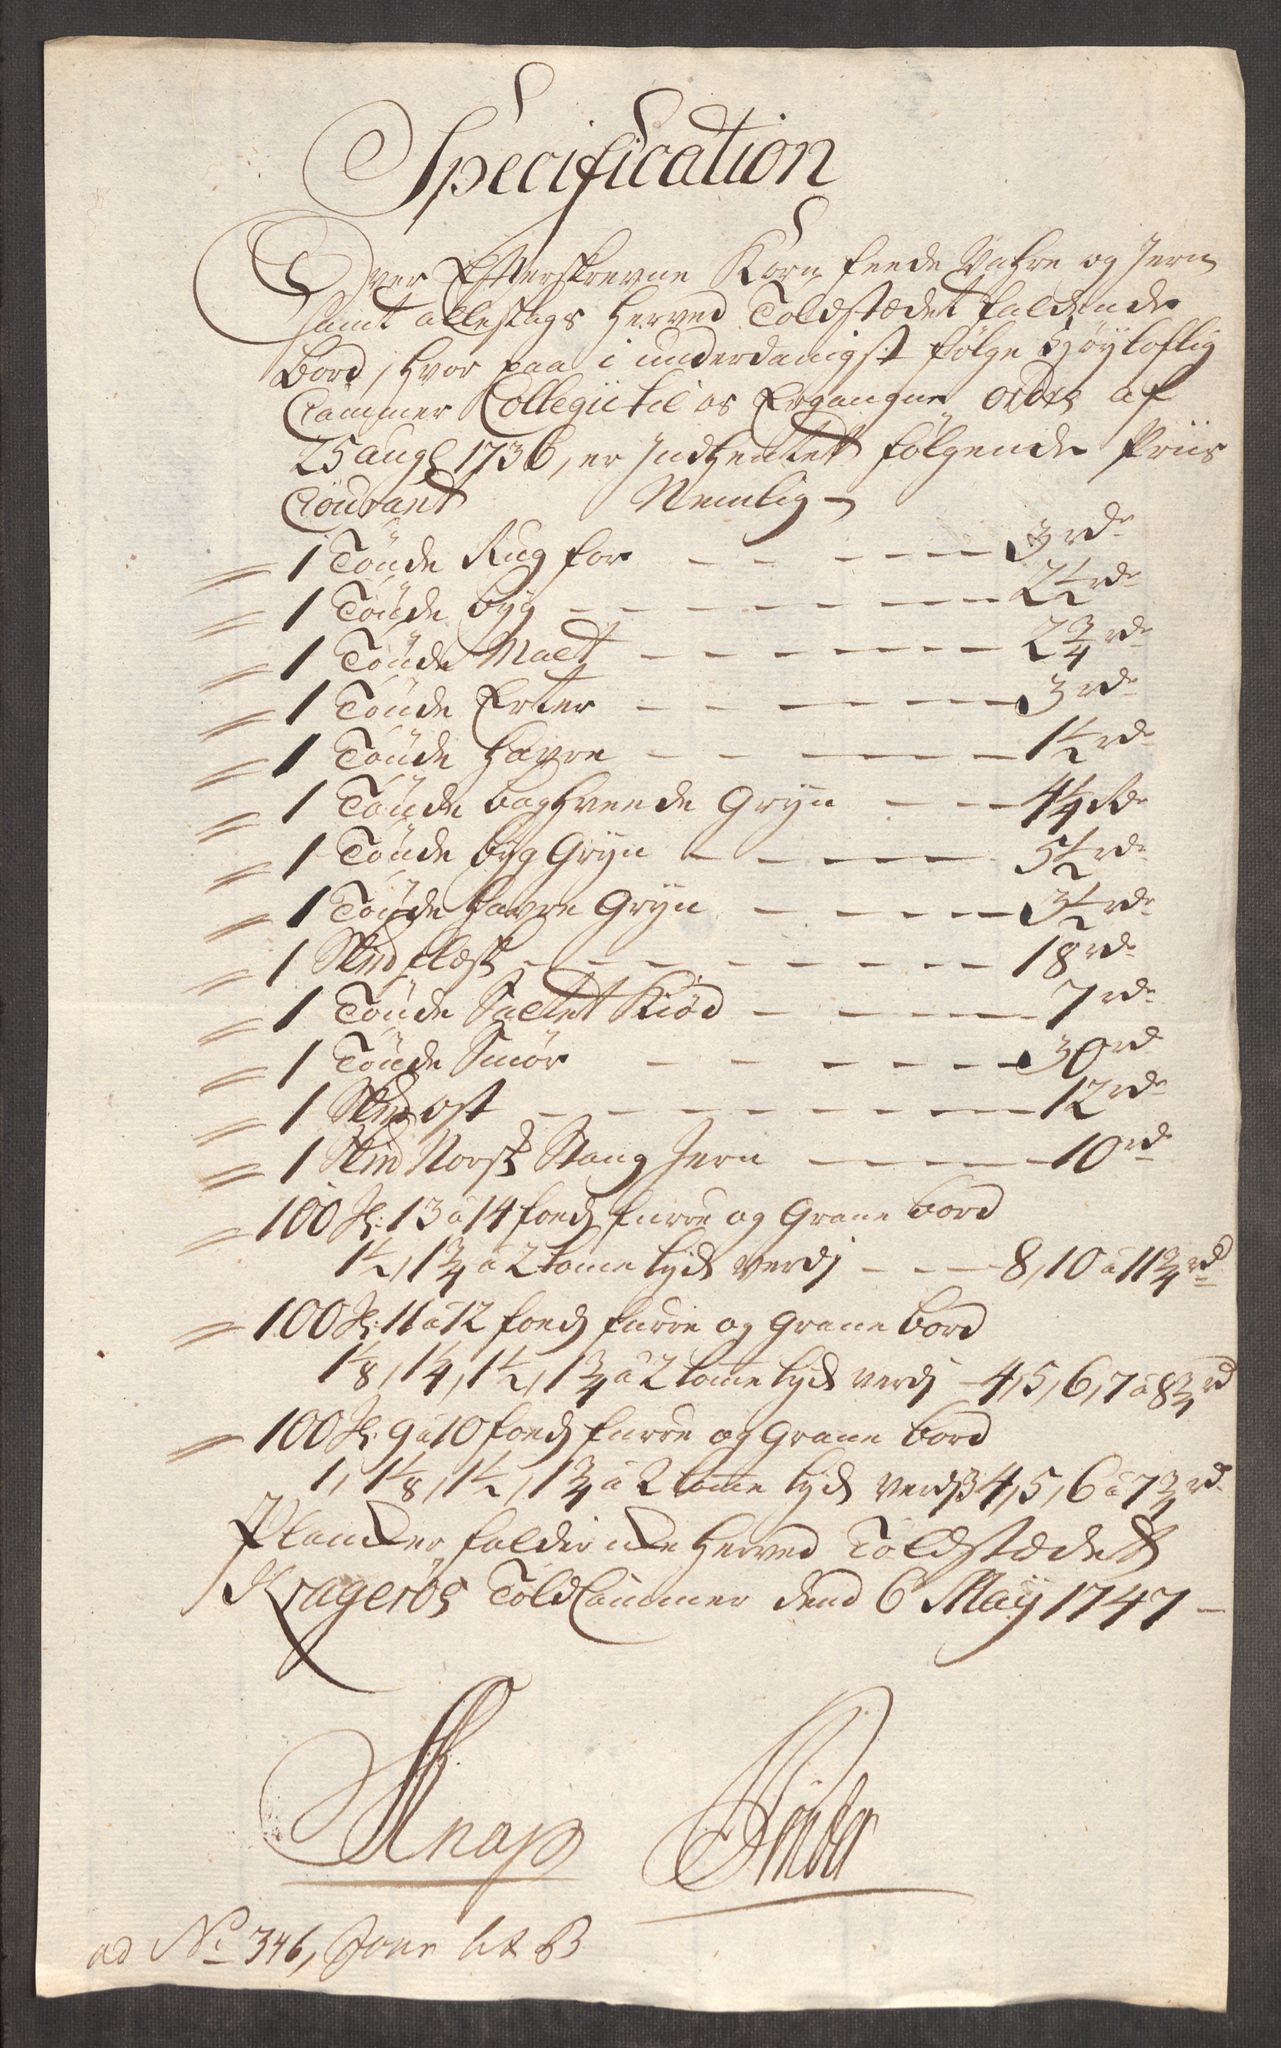 Specification
Over Efterskrevne Korn feede Vahre og Jern
samt alleslags herved Toldstædet faldende
Bord, hvor paa i underdanigst følge Høyloflig
Cammer Collegii til os Ergangne ordre af
25 augs 1736, er Indhentet følgende Priis
Courant Nemlig
1 Tønde Rug for 3 rd
1 Tønde byg 2 1/2 rd
1 Tønde Malt 2 3/4 rd
1 Tønde Erter 3 rd
1 Tønde Havre 1 1/2 rd
1 Tønde boghveede Gryn 4 1/4 rd
1 Tønde byg Gryn 5 1/2 rd
1 Tønde Havre Gryn 3 1/2 rd
1 flæsk 18 rd
1 Tønde Saltet Kiød 7 rd
1 Tønde Smør 30 rd
1 ost 12 rd
1 Norsk Stang Jern 10 rd
100 St: 13 a 14 foeds furre og Grane bord
1 1/2, 1 3/4 a 2 tome tyk verdj 8, 10 a 11 3/4 rd
100 St: 11 a 12 foeds furre og Grane bord
1 1/8, 1 1/4, 1 1/2, 1 3/4 a 2 tome tyk verdj 4, 5, 6, 7 a 8 3/4 rd
100 St: 9 a 10 foeds furre og Grane bord
1, 1 1/8, 1 1/2, 1 3/4 a 2 tome tyk verdj 3, 4, 5, 6 a 7 3/4 rd
Plancker falder icke herved Toldstædet
Kragerøes Told Cammer dend 6 May 1747
Knap
ad No 346, B